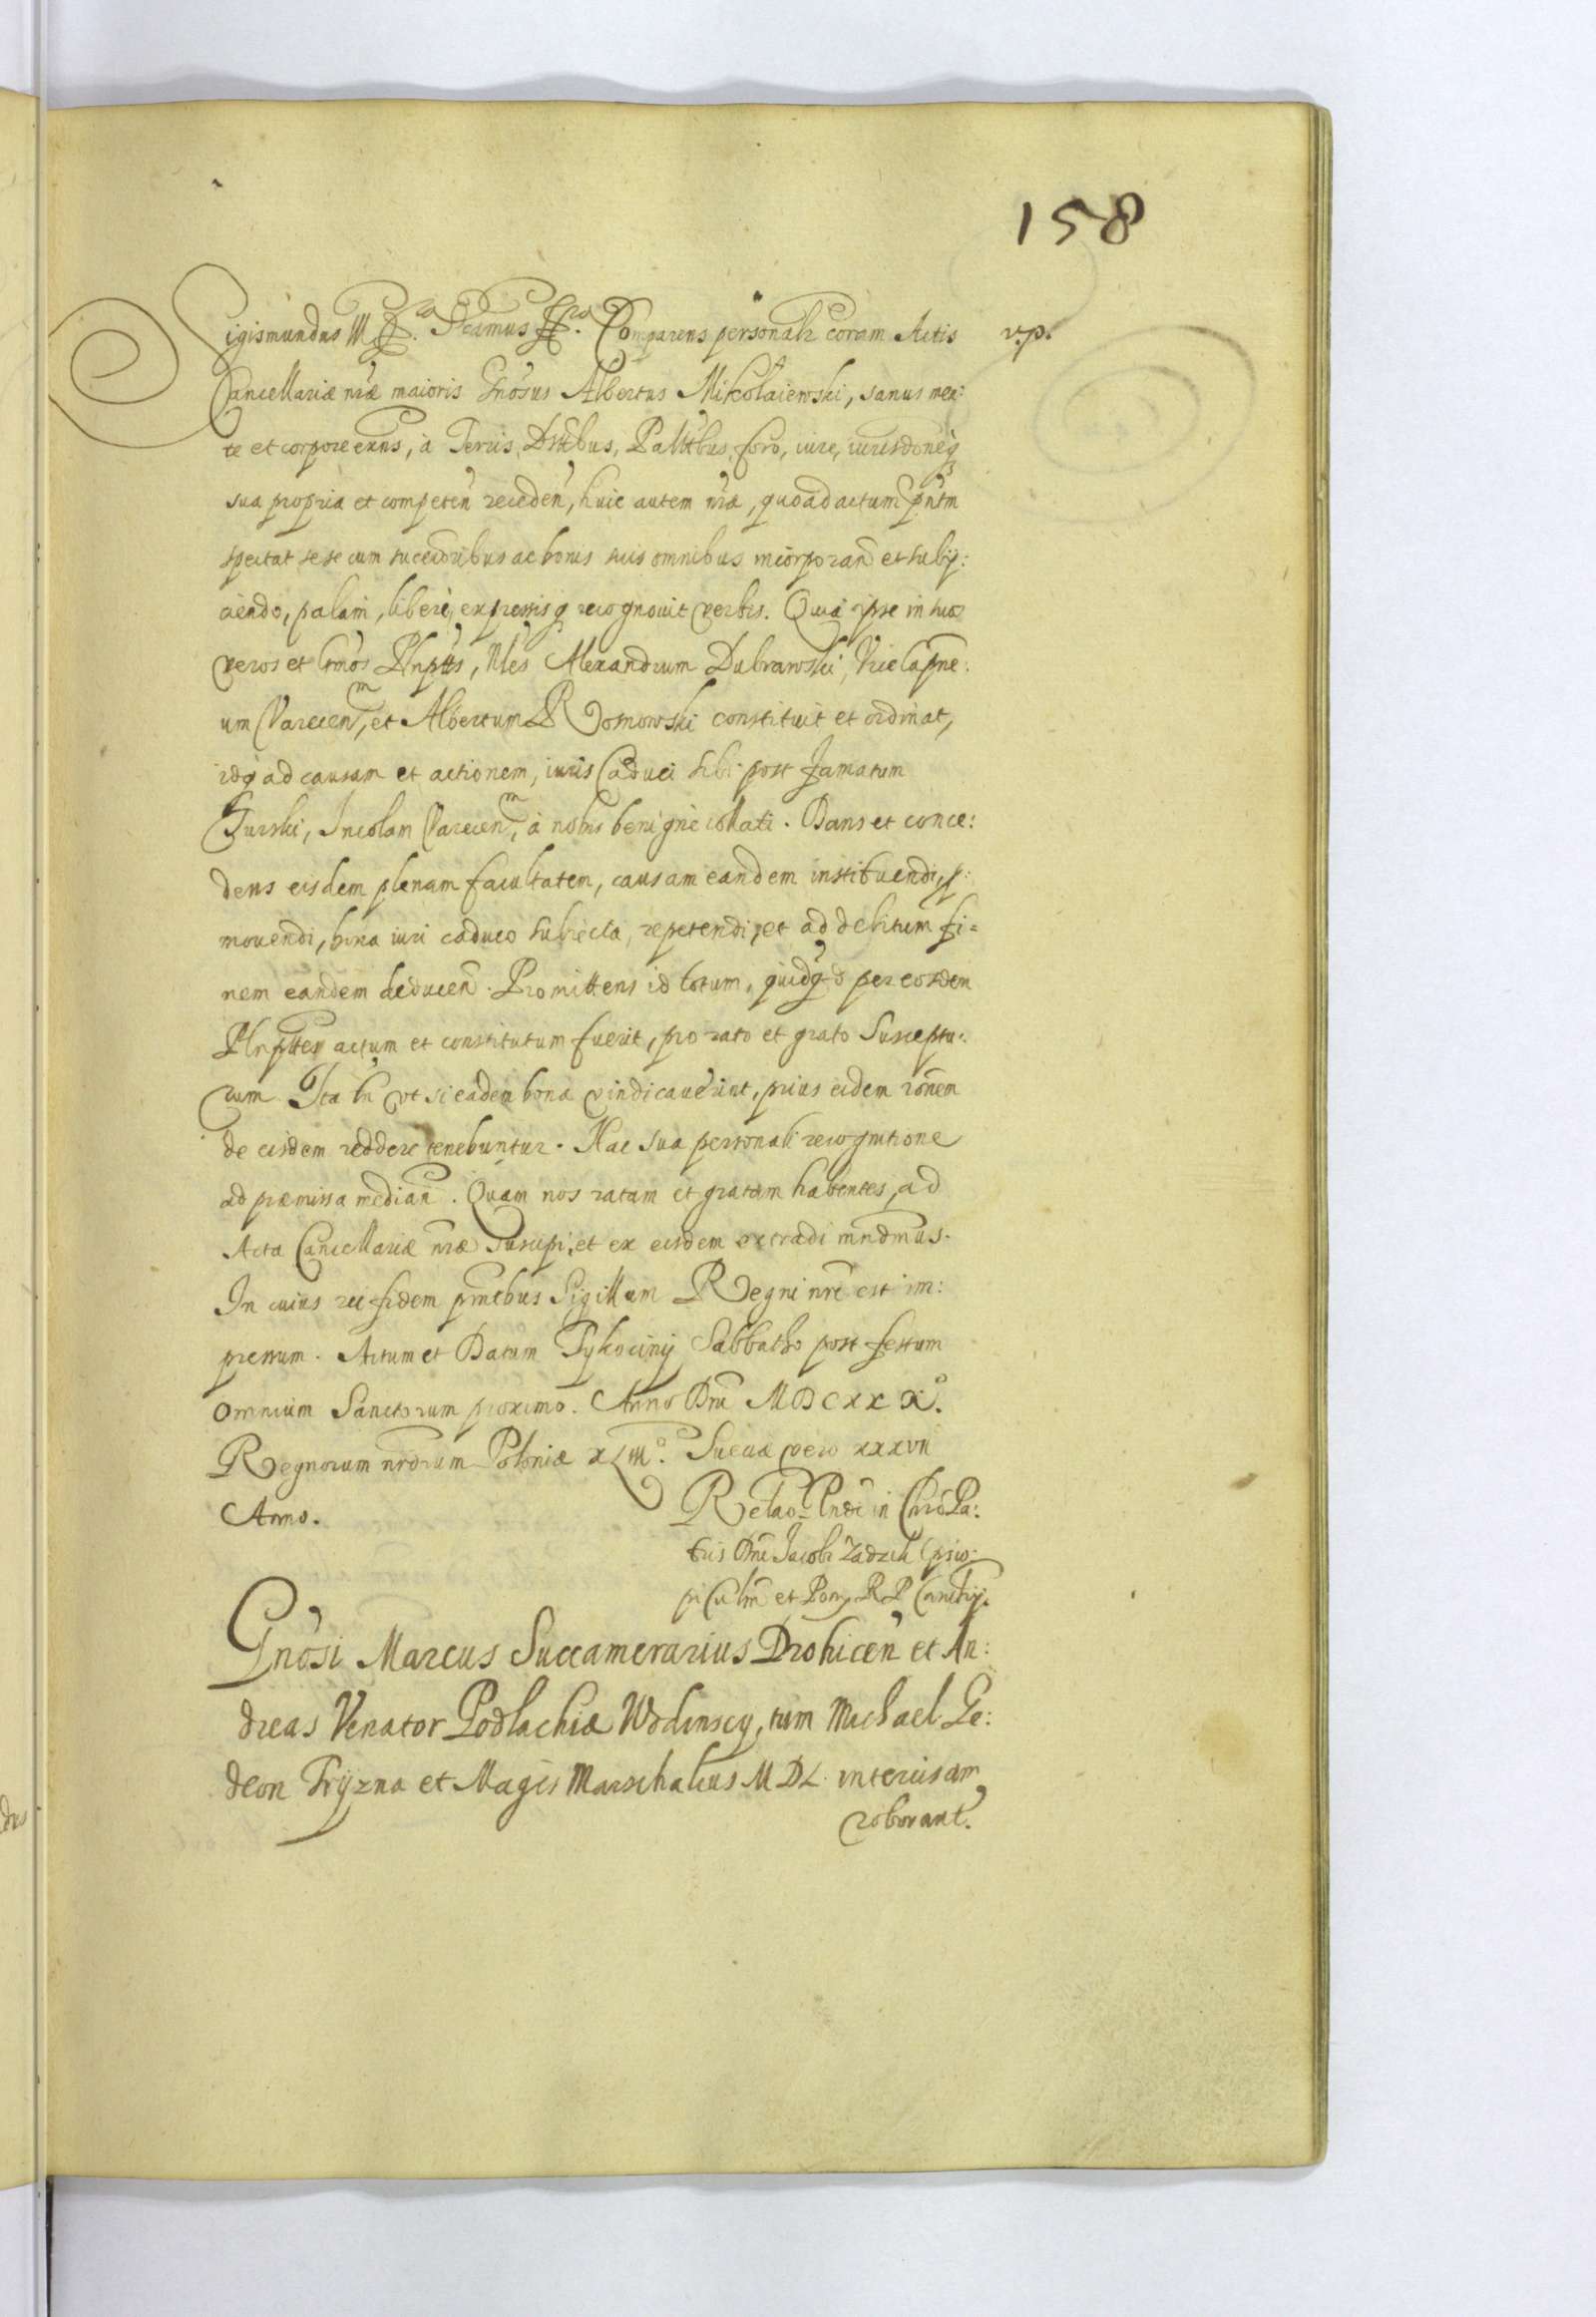 158
Sigismundus III D. gra Scamus Comparens personalr coram Actis
v.p.
Cancellariæ nræ maioris Gnosus Albertus Mikołaiewski, sanus men:
te et corpore exns, à Terris, Dsttbus, Palttbus, foro, iure, iurisdoneq
sua propria et competen receden, huic autem nræ, quoad actum pntm
spectat sese cum successoribus ac bonis suis omnibus incorporan et subij:
ciendo, palam, liberè, expressisq recognouit verbis. Quia ipse in suos
veros et lttmos Plnpttes, Nles Alexandrum Dubrawski, Vicecapne:
um Varecen, et Albertum Rosnowski constituit et ordinat,
idq ad causam et actionem, iuris Caduci sibi post famatum
Gurski, Incolam Varecen, à nobis benignè collati. Dans et conce:
dens eisdem plenam facultatem, causam eandem instituendi, p:
mouendi, bona iuri caduco subiecta, repetendi, et ad debitum fi=
nem eandem deducen. Promittens id totum, quidqd per eosdem
Plnpttes actum et constitutum fuerit, pro rato et grato Susceptu:
rum. Ita tn vt si eadem bona vindicauerint, prius eidem ronem
de eisdem reddere tenebuntur. Hac sua personali recognitione
ad præmissa median. Quam nos ratam et gratam habentes, ad
Acta Cancellariæ nræ Suscipi, et ex eisdem extradi mndmus.
In cuius rei fidem pntibus Sigillum Regni nri est im:
pressum. Actum et Datum Tykociny Sabbatho post festum
omnium Sanctorum proximo. Anno Dni MDCXXIX.
Regnorum nrorum Poloniæ XLIII. Sueciæ vero XXXVII
Anno.
Relao Rndi in Chro Pa:
tris Dni Jacobi Zadzik Episco:
pi Culm et Pom, R.P. Cancrij.
Gnosi Marcus Succamerarius Drohicen et An:
dreas Venator Podlachiæ Wodinscy, tum Michael Ge:
deon Tryzna et Magis Marschalcus MDL intercisam
roborant.